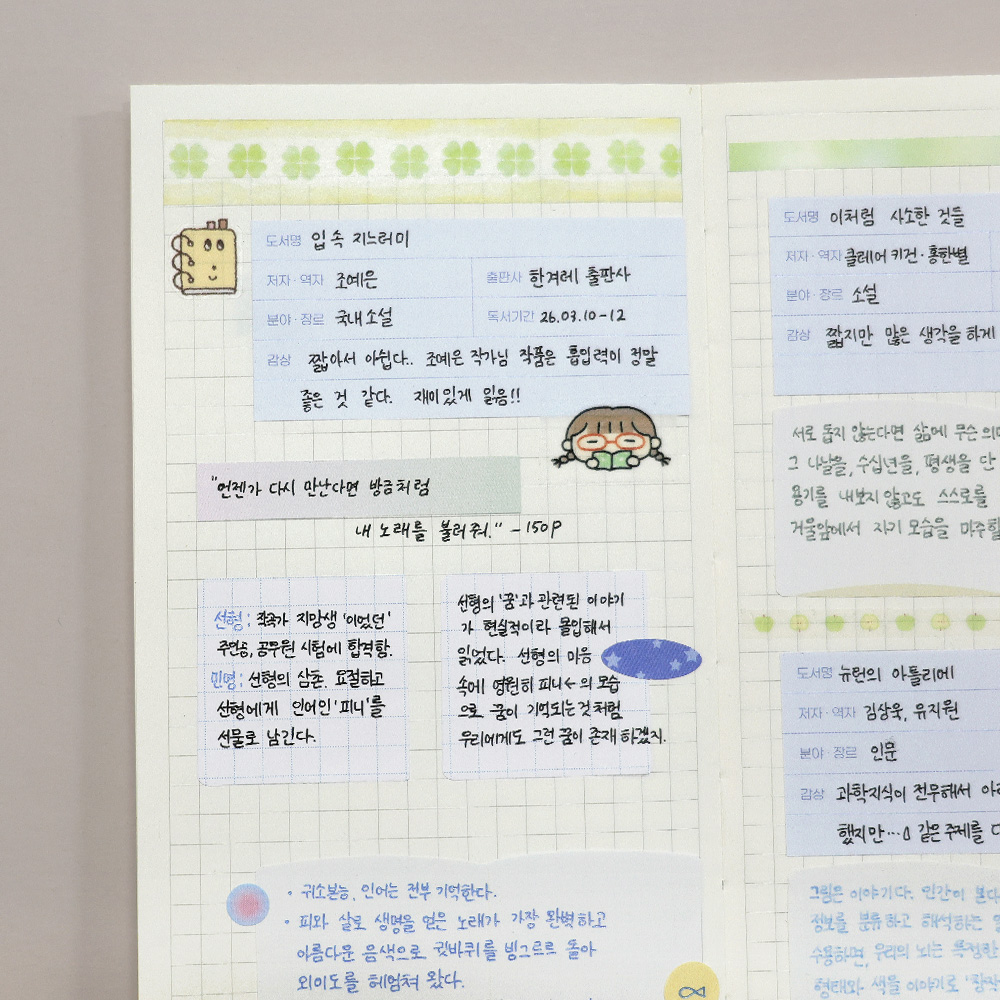 도서명 입 속 지느러미
저자·역자 조예은
출판사 한겨레 출판사
분야·장르 국내소설
독서기간 26.03.10-12
감상 짧아서 아쉽다.. 조예은 작가님 작품은 흡입력이 정말
좋은 것 같다. 재미있게 읽음!!
"언젠가 다시 만난다면 방금처럼
내 노래를 불러줘." - 150p
선형: 작곡가 지망생 '이었던'
주인공, 공무원 시험에 합격함.
민영: 선형의 삼촌. 요절하고
선형에게 인어인 '피니'를
선물로 남긴다.
선형의 '꿈'과 관련된 이야기
가 현실적이라 몰입해서
읽었다. 선형의 마음
속에 영원히 피니←의 모습
으로 꿈이 기억되는 것처럼
우리에게도 그런 꿈이 존재하겠지.
• 귀소본능, 인어는 전부 기억한다.
• 피와 살로 생명을 얻은 노래가 가장 완벽하고
아름다운 음색으로 귓바퀴를 빙그르르 돌아
외이도를 헤엄쳐 왔다.
도서명 이처럼 사소한 것들
저자·역자 클레어 키건·홍한별
분야·장르 소설
감상 짧지만 많은 생각을 하게
서로 돕지 않는다면 삶에 무슨 의미
그 나날을, 수십년을, 평생을 단
용기를 내보지 않고도 스스로를
거울앞에서 자기 모습을 마주할
도서명 뉴런의 아틀리에
저자·역자 김상욱, 유지원
분야·장르 인문
감상 과학지식이 전무해서
했지만… 같은 주제를
그림은 이야기다. 인간이 본
정보를 분류하고 해석하는
수용하면, 우리의 뇌는 특정한
형태와 색을 이야기로